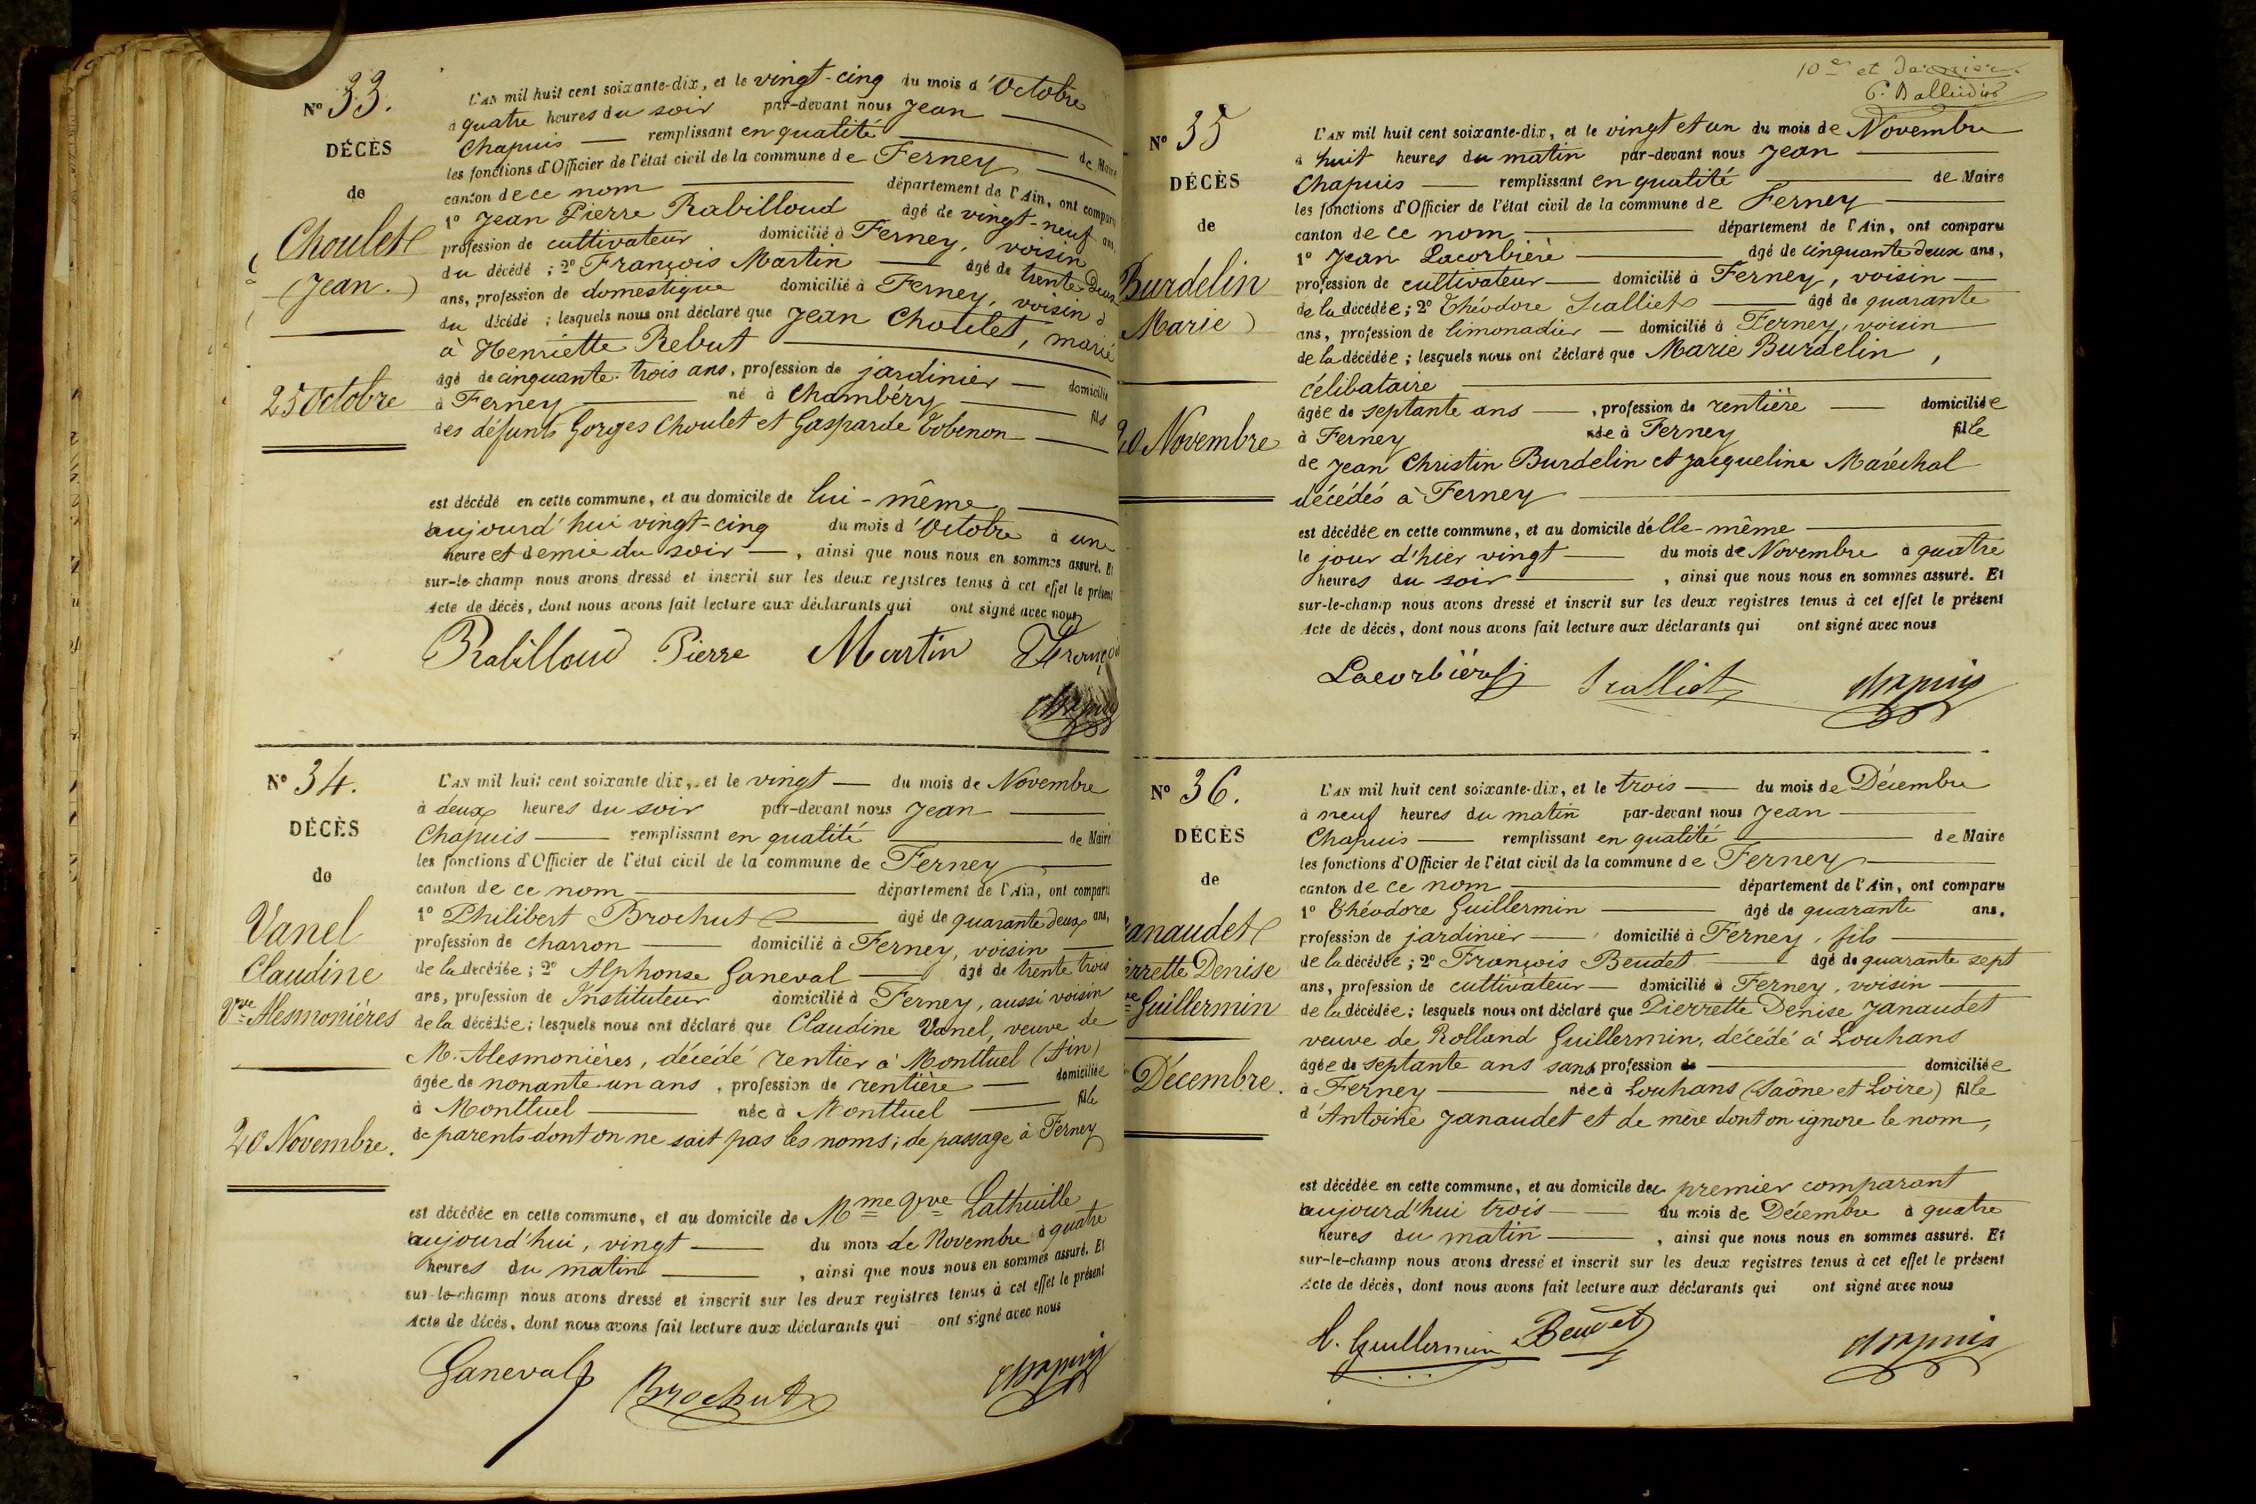 N° 33.
DÉCÈS
de
Choulet
(Jean.)
25 Octobre
L'AN mil huit cent soixante-dix, et le vingt-cinq du mois d'Octobre
à quatre heures du soir par-devant nous Jean
Chapuis remplissant en qualité de Maire
les fonctions d'Officier de l'état civil de la commune de Ferney
canton de ce nom département de l'Ain, ont comparu
1° Jean Pierre Rabilloud âgé de vingt-neuf ans,
profession de cultivateur domicilié à Ferney, voisin
du décédé ; 2° François Martin âgé de trente deux
ans, profession de domestique domicilié à Ferney, voisin
du décédé ; lesquels nous ont déclaré que Jean Choulet, marié
à Henriette Rebut
âgé de cinquante-trois ans, profession de jardinier domicilié
à Ferney né à Chambéry fils
des défunts Gorges Choulet et Gasparde
est décédé en cette commune, et au domicile de lui-même
aujourd'hui vingt-cinq du mois d'Octobre à une
heure et demie du soir, ainsi que nous nous en sommes assuré. Et
sur-le-champ nous avons dressé et inscrit sur les deux registres tenus à cet effet le présent
Acte de décès, dont nous avons fait lecture aux déclarants qui ont signé avec nous
Rabilloud Pierre Martin François
Chapuis
N° 34.
DÉCÈS
de
Vanel
Claudine
Vve Alesmonières
20 Novembre.
L'AN mil huit cent soixante dix, et le vingt du mois de Novembre
à deux heures du soir par-devant nous Jean
Chapuis remplissant en qualité de Maire
les fonctions d'Officier de l'état civil de la commune de Ferney
canton de ce nom département de l'Ain, ont comparu
1° Philibert Brochut âgé de quarante-deux ans,
profession de charron domicilié à Ferney, voisin
de la décédée ; 2° Alphonse Ganeval âgé de trente trois
ans, profession de Instituteur domicilié à Ferney, aussi voisin
de la décédée ; lesquels nous ont déclaré que Claudine Vanel, veuve de
M. Alesmonières, décédé rentier à Montluel (Ain)
âgée de nonante-un ans, profession de rentière domiciliée
à Montluel née à Montluel fille
de parents dont on ne sait pas les noms ; de passage à Ferney
est décédée en cette commune, et au domicile de Mme Vve Lathuille
aujourd'hui, vingt du mois de Novembre à quatre
heures du matin, ainsi que nous nous en sommes assuré. Et
sur-le-champ nous avons dressé et inscrit sur les deux registres tenus à cet effet le présent
Acte de décès, dont nous avons fait lecture aux déclarants qui ont signé avec nous
Ganeval Brochut Chapuis
10e et dernier.
N° 35
DÉCÈS
de
Burdelin
Marie)
20 Novembre
L'AN mil huit cent soixante-dix, et le vingt et un du mois de Novembre
à huit heures du matin par-devant nous Jean
Chapuis remplissant en qualité de Maire
les fonctions d'Officier de l'état civil de la commune de Ferney
canton de ce nom département de l'Ain, ont comparu
1° Jean Lacorbière âgé de cinquante deux ans,
profession de cultivateur domicilié à Ferney, voisin
de la décédée ; 2° Théodore âgé de quarante
ans, profession de limonadier domicilié à Ferney, voisin
de la décédée ; lesquels nous ont déclaré que Marie Burdelin,
célibataire
âgée de septante ans, profession de rentière domiciliée
à Ferney née à Ferney fille
de Jean Christin Burdelin et Jacqueline Maréchal
décédés à Ferney
est décédée en cette commune, et au domicile d'elle-même
le jour d'hier vingt du mois de Novembre à quatre
heures du soir, ainsi que nous nous en sommes assuré. Et
sur-le-champ nous avons dressé et inscrit sur les deux registres tenus à cet effet le présent
Acte de décès, dont nous avons fait lecture aux déclarants qui ont signé avec nous
Lacorbière Chapuis
N° 36.
DÉCÈS
de
anaudet
errette Denise
ve Guillermin
Décembre.
L'AN mil huit cent soixante-dix, et le trois du mois de Décembre
à neuf heures du matin par-devant nous Jean
Chapuis remplissant en qualité de Maire
les fonctions d'Officier de l'état civil de la commune de Ferney
canton de ce nom département de l'Ain, ont comparu
1° Théodore Guillermin âgé de quarante ans,
profession de jardinier domicilié à Ferney, fils
de la décédée ; 2° François Beudet âgé de quarante sept
ans, profession de cultivateur domicilié à Ferney, voisin
de la décédée ; lesquels nous ont déclaré que Pierrette Denise Janaudet
veuve de Rolland Guillermin, décédé à Louhans
âgée de septante ans sans profession de domiciliée
à Ferney née à Louhans (Saône et Loire) fille
d'Antoine Janaudet et de mère dont on ignore le nom,
est décédée en cette commune, et au domicile du premier comparant
aujourd'hui trois du mois de Décembre à quatre
heures du matin, ainsi que nous nous en sommes assuré. Et
sur-le-champ nous avons dressé et inscrit sur les deux registres tenus à cet effet le présent
Acte de décès, dont nous avons fait lecture aux déclarants qui ont signé avec nous
Guillermin Beudet Chapuis